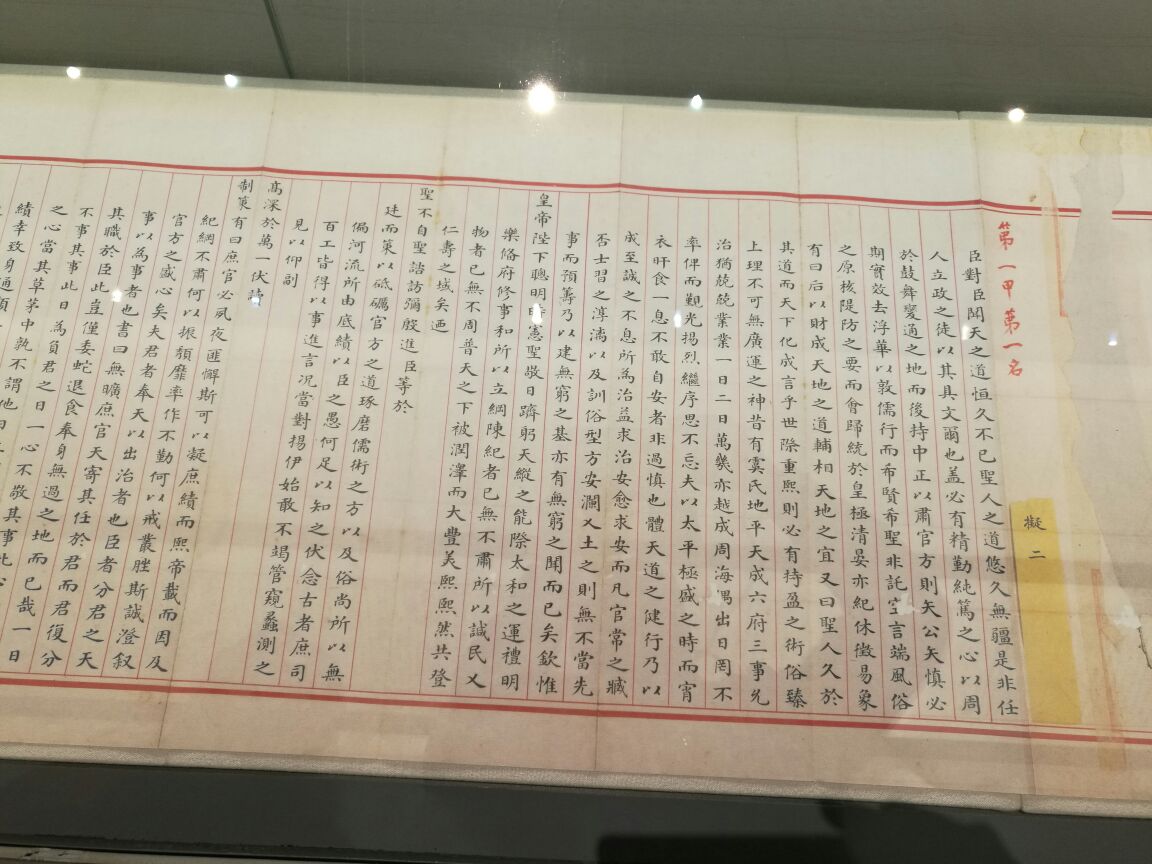 擬二
第一甲第一名
臣對臣聞天之道恒久不已聖人之道悠久無疆是非任
人立政之徒以其具文爾也盖必有精勤純篤之心以周
於鼓舞變通之地而後持中正以肅官方則矢公矢慎必
期實效去浮華以敦儒行而希賢希聖非託空言端風俗
之原核隄防之要而會歸統於皇極清晏亦紀休徵易象
有曰后以財成天地之道輔相天地之宜又曰聖人久於
其道而天下化成言乎世際重熙則必有持盈之術俗臻
上理不可無廣運之神昔有虞氏地平天成六府三事允
治猶兢兢業業一日二日萬幾亦越成周海隅出日罔不
率俾而覲光揚烈繼序思不忘夫以太平極盛之時而宵
衣旰食一息不敢自安者非過慎也體天道之健行乃以
成至誠之不息所為治益求治安愈求安而凡官常之臧
否士習之淳漓以及訓俗型方安瀾乂土之則無不當先
事而預籌乃以建無窮之基亦有無窮之聞而已矣欽惟
皇帝陛下聰明時憲聖敬日躋躬天縱之能際太和之運禮明
樂備府修事和所以立綱陳紀者已無不肅所以諴民乂
物者已無不周普天之下被潤澤而大豐美熙熙然共登
仁壽之域矣迺
聖不自聖諮訪彌殷進臣等於
廷而策以砥礪官方之道琢磨儒術之方以及俗尚所以無
偏河流所由底績以臣之愚何足以知之伏念古者庶司
百工皆得以事進言況當對揚伊始敢不竭管窺蠡測之
見以仰副
高深於萬一伏讀
制策有曰庶官必夙夜匪懈斯可以凝庶績而熙帝載而因及
紀綱不肅何以振頹靡率作不勤何以戒叢脞斯誠澄叙
官方之盛心矣夫君者奉天以出治者也臣者分君之天
事以為事者也書曰無曠庶官天寄其任於君而君復分
其職於臣此豈僅委蛇退食奉身無過之地而已哉一日
不事其事此日為負君之日一心不敬其事此心
之心當其草茅中孰不謂他日
績幸致身通顯